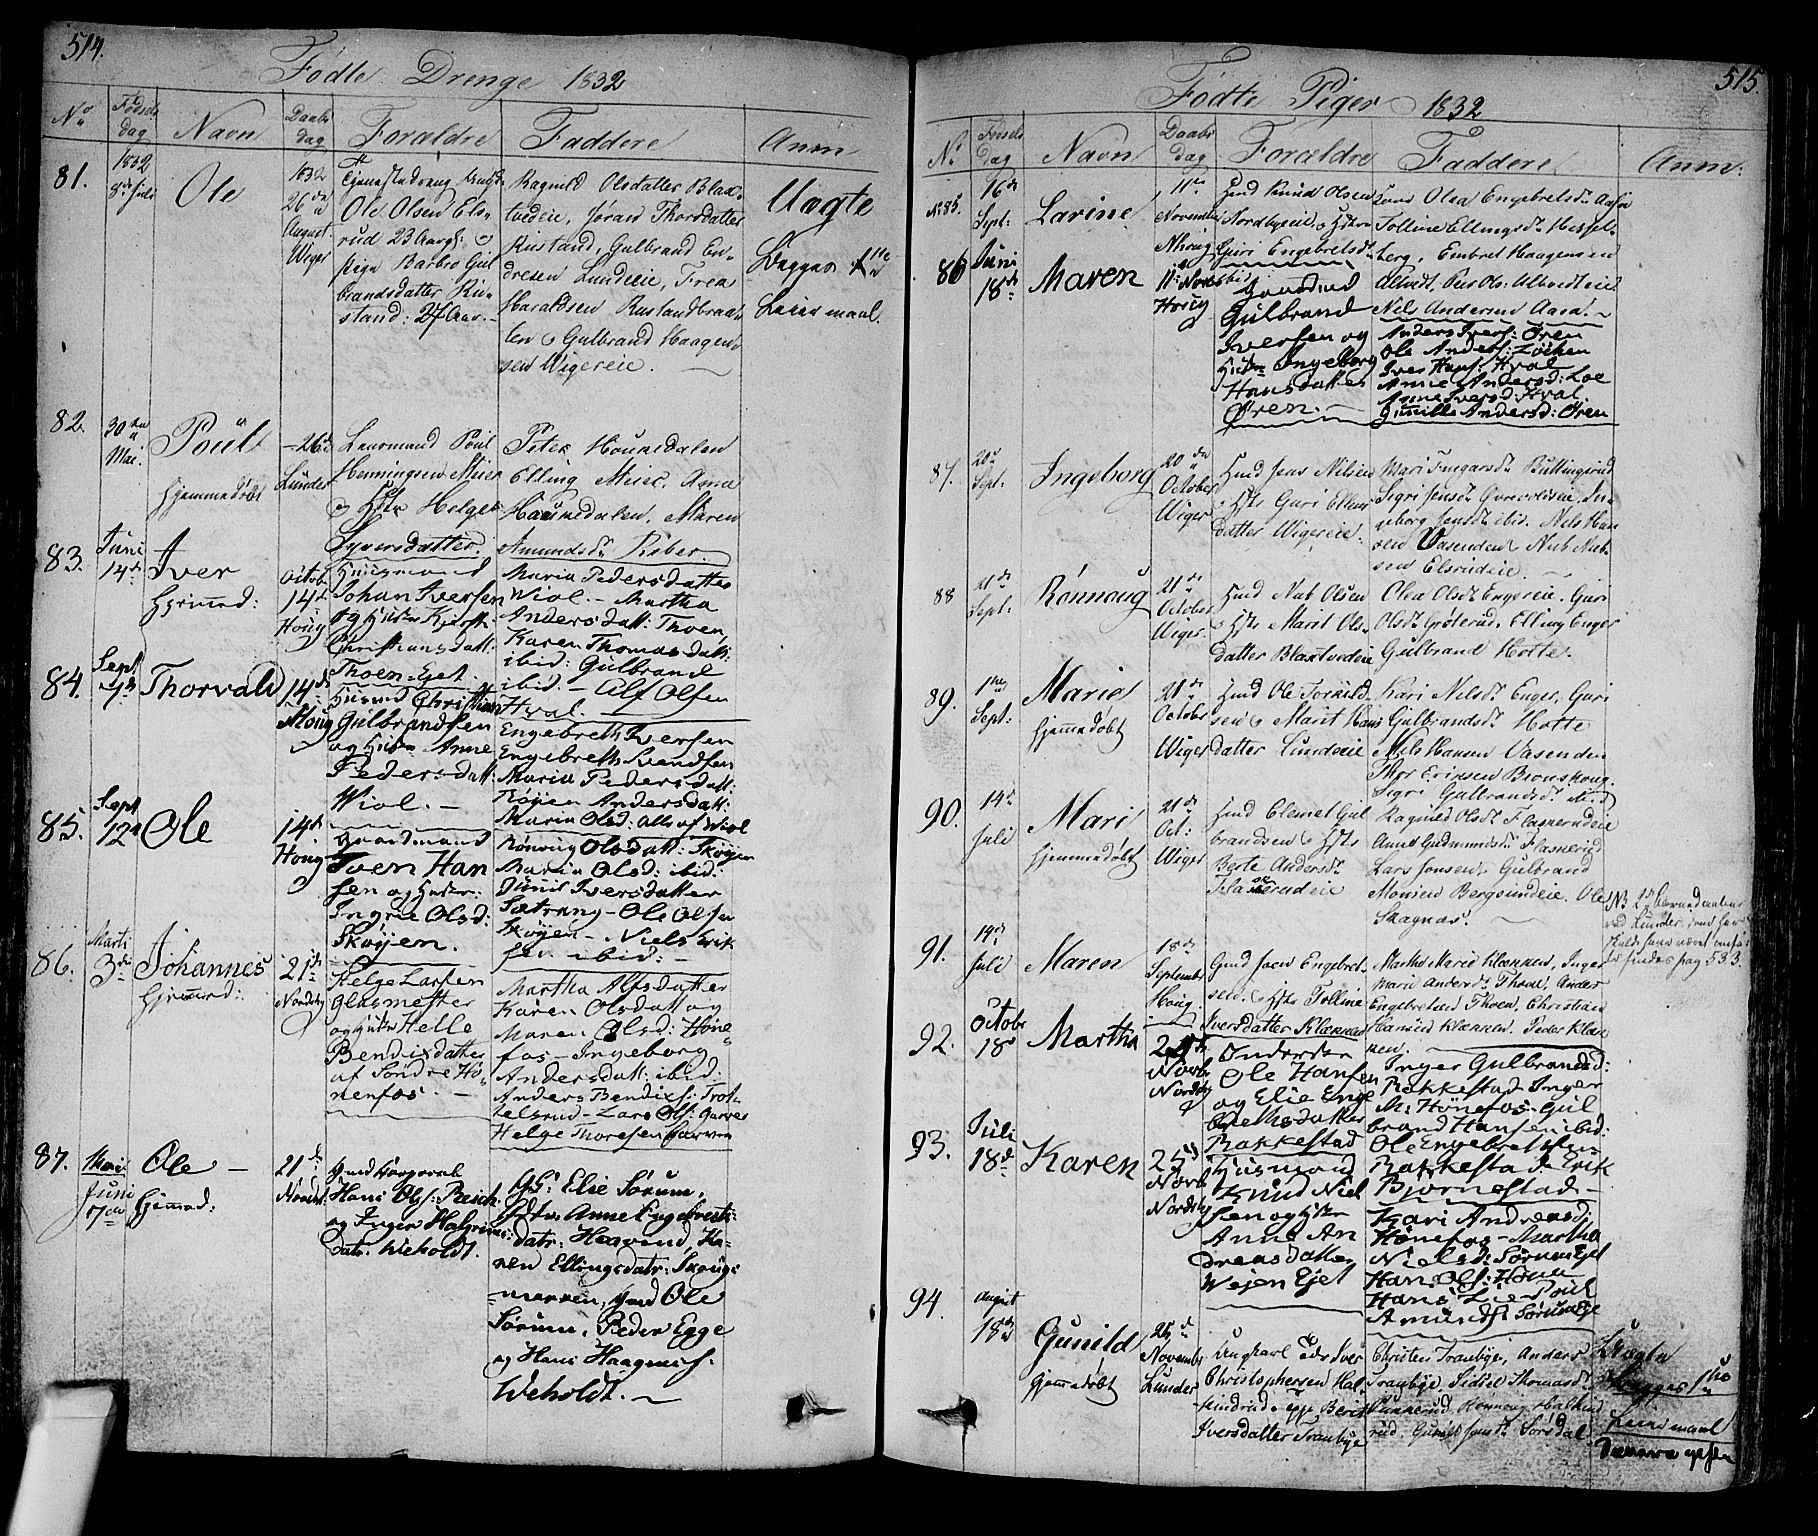 514.
Födte Drenge 1832
No
Födsels
dag
Navn
Daabs
dag
Forældre
Faddere
Anm
81.
1832
8de Juli
Ole
1832
26de
August
Wiger
Ole Olsen Els-
rud 23 Aar
Pige Barbro Gul
brandsdatter Ru-
stand: 27 Aar.
Ragnild Olsdatter Blax-
tvedeie, Jörand Thorsdatter
Rustand, Gulbrand En-
dresen Lundeeie,
Haraldsen Rustandbraa-
ten & Gulbrand Haagen-
sen Wigereie.
Uægte
Begges 1ste
Leiermaal.
82.
30te
Mai.
Poül
Hjemmedöbt
26de
Lunder
Poül
Henningsen Meier
& Hstr Helge
Syversdatter.
Peter Hounsdalen
Elling Meier, Anne
Hounsdalen, Maren
Amundsdr Röber.
83.
Juni
14de
Iver
Hjemmed:
Octob.
14de
Houg
Huusmand
Johan Iversen
og Hustr Kjersti
Christiansdatt:
Thoen-Ejet.
Maria Pedersdatter
Wiol. - Martha
Andersdatt: Thoen
Karen Thomasdatt:
ibid: Gulbrand
ibid. - Alf Olsen
Hval.
84.
Sept
7de
Thorvald
14de
Houg
Huusmd Christian
Gulbrandsen
og Hustr. Anne
Pedersdatt:
Wiol. -
Engebreth Iversen
Engebreth Svendsen
Maria Pedersdatt:
Röjen Andersdatt:
Maria Olsd: Alls af Wiol
85.
Sept
12te
Ole
14de
Houg
Gaardmand
Iver Han
sen og Hustr:
Ingrie Olsd:
Sköjen.
Rönoug Olsdatt: Sköjen
Maria Olsd: ibid:
Gunil Iversdatter
Sætrang - Ole Olsen
Sköjen - Niels Erik
sen ibid: -
86.
Marti
3die
Johannes
Hjemmed:
21de
Nordrh.
Helge Larsen
Glasmester
og Hustr Helle
Bendixdatter
af Söndre Hö-
nenfos. -
Martha Alfsdatter
Karen Olsdatt og
Maren Olsd: Höne
fos - Ingeborg
Andersdatt: ibid:
Anders Bendixs: Trol-
telsrud - Lars Ols: Garver
Helge Thoresen Garver
87.
Juni
7de
Ole -
Hjemmed:
21de
Nordrh.
Hans Ols: Reich
og Inger Halgrims
datr: Weholdt.
Elie Sörum,
Anne Engebrets-
datr: Haavend, Ka-
ren Ellingsdatr: Skougs-
marken, Gmd Ole
Sörum, Peder Egge
og Hans Haagens:
Weholdt. -
515.
Födte Piger 1832
No
Födsels
Dag
Navn
Daabs
dag
Forældre
Faddere
Anm:
No 85.
16de
Sept:
Larine
11te
November
Nhoug
Hmd Knud Olsen
Nordbyeeie, & Hstr
Guri Engebretsdr
Olea Engebretsdr Aasa
Tolline Ellingsdr Hessel-
berg, Embret Haagensen
Nels Andersen Aasa. -
86
Juni
18de
Maren
11te Novb
Houg
Gaardmd
Gulbrand
Iversen og
Hustr Ingeborg
Hansdatter
Ören. -
Anders Ivers: Ören
Ole Anders: Lökken
Iver Hans: Hval
Annie Andersd: Loe
Anne Iversd: Hval.
Gunille Andersd: Ören
87.
20de
Sept:
Ingeborg
20de
October
Wiger
Hmd Jens Nilsen
& Hstr Guri Ellens
datter Wigereie.
Mari Ingarsdr Buttingsrud
Sigri Jensdr Gurevoldseie, In-
geborg Jensdr ibid. Nils Han
sen Vasenden Nub Nub-
sen Elsrudeie. -
88
21de
Sept:
Rönnoug
21de
October
Wiger.
Hmd Nub Olsen
& Hstr Marit Ols-
datter Blaxtvedeie
Olea Olsdr Engereie, Guri
Olsdr Gröterud, Elling Enger
Gulbrand Hotte.
89.
1ste
Sept:
Marie
Hjemmedöbt
21de
October
Wiger
Hmd Ole Torkild
sen & Marit Hans
datter Lundeeie
Kari Nelsdr Enger, Guri
Gulbrandsdr Hotte
Nils Hansen Vasenden
Thor Eriksen Bronskoug
Sigri Gulbrandsdr ibid
90.
14de
Juli
Mari
Hjemmedöbt
21de
Oct:
Wiger
Hmd Clemet Gul
brandsen & Hstr
Berte Andersdr
Flaskerudeie
Ragnild Olsdr Flaskerudeie
Anne Gudmundsdr Flaskerud
Lars Jonsen Gulbrand
Monsen Bergsundeie, Ole
Skagnæs.
91.
19de
Juli
Maren
18de
September
Houg.
Gmd Joen Engebret-
sen. & Hstr Tolline
Iversdatter Klækken
Martha Marie Klækken, Inger
Marie Andersdr Thoen, Anders
Engebretsen Thoen, Christian
Hansen Klækken, Peder Klæk
ken.
pag 533.
92.
Octobr
18de
Martha
24de
Novbr
Nordrh
Ole Hansen
og Elie Enge
brethsdatter
Rakkestad
Inger Gulbrandsd:
Rakkestad - Inger
M: Hönefos - Gul
brand Hansen ibid:
Ole Engebrethsen
Rakkestad - Erik
Björnestad -
93.
Juli
18de
Karen
25de
Novb
Nordrh
Huusmand
Knud Niel
sen og Hstr
Anne An
dreasdatter
Wejen Ejet
Kari Andreasd:
Hönefos - Martha
Nielsd: Sörum Ejet
Han Ols: Höne
Hans Lie - Poul
Amunds: Sörum Eje
94.
August
18de
Gunild
Hjemmedöbt
25de
November
Lunder
Ungkarl Peder Iver
Christophersen Hal-
stindrud & Pige Berit
Iversdatter Tranbye
Christen Tranbye, Anders
Tranbye, Sidsel Thomasdr
Bukkerud, Rönnoug Halstind
rud, Gunild Jensdr Sörsdal
Uægte
Begges 1ste
Leiermaal